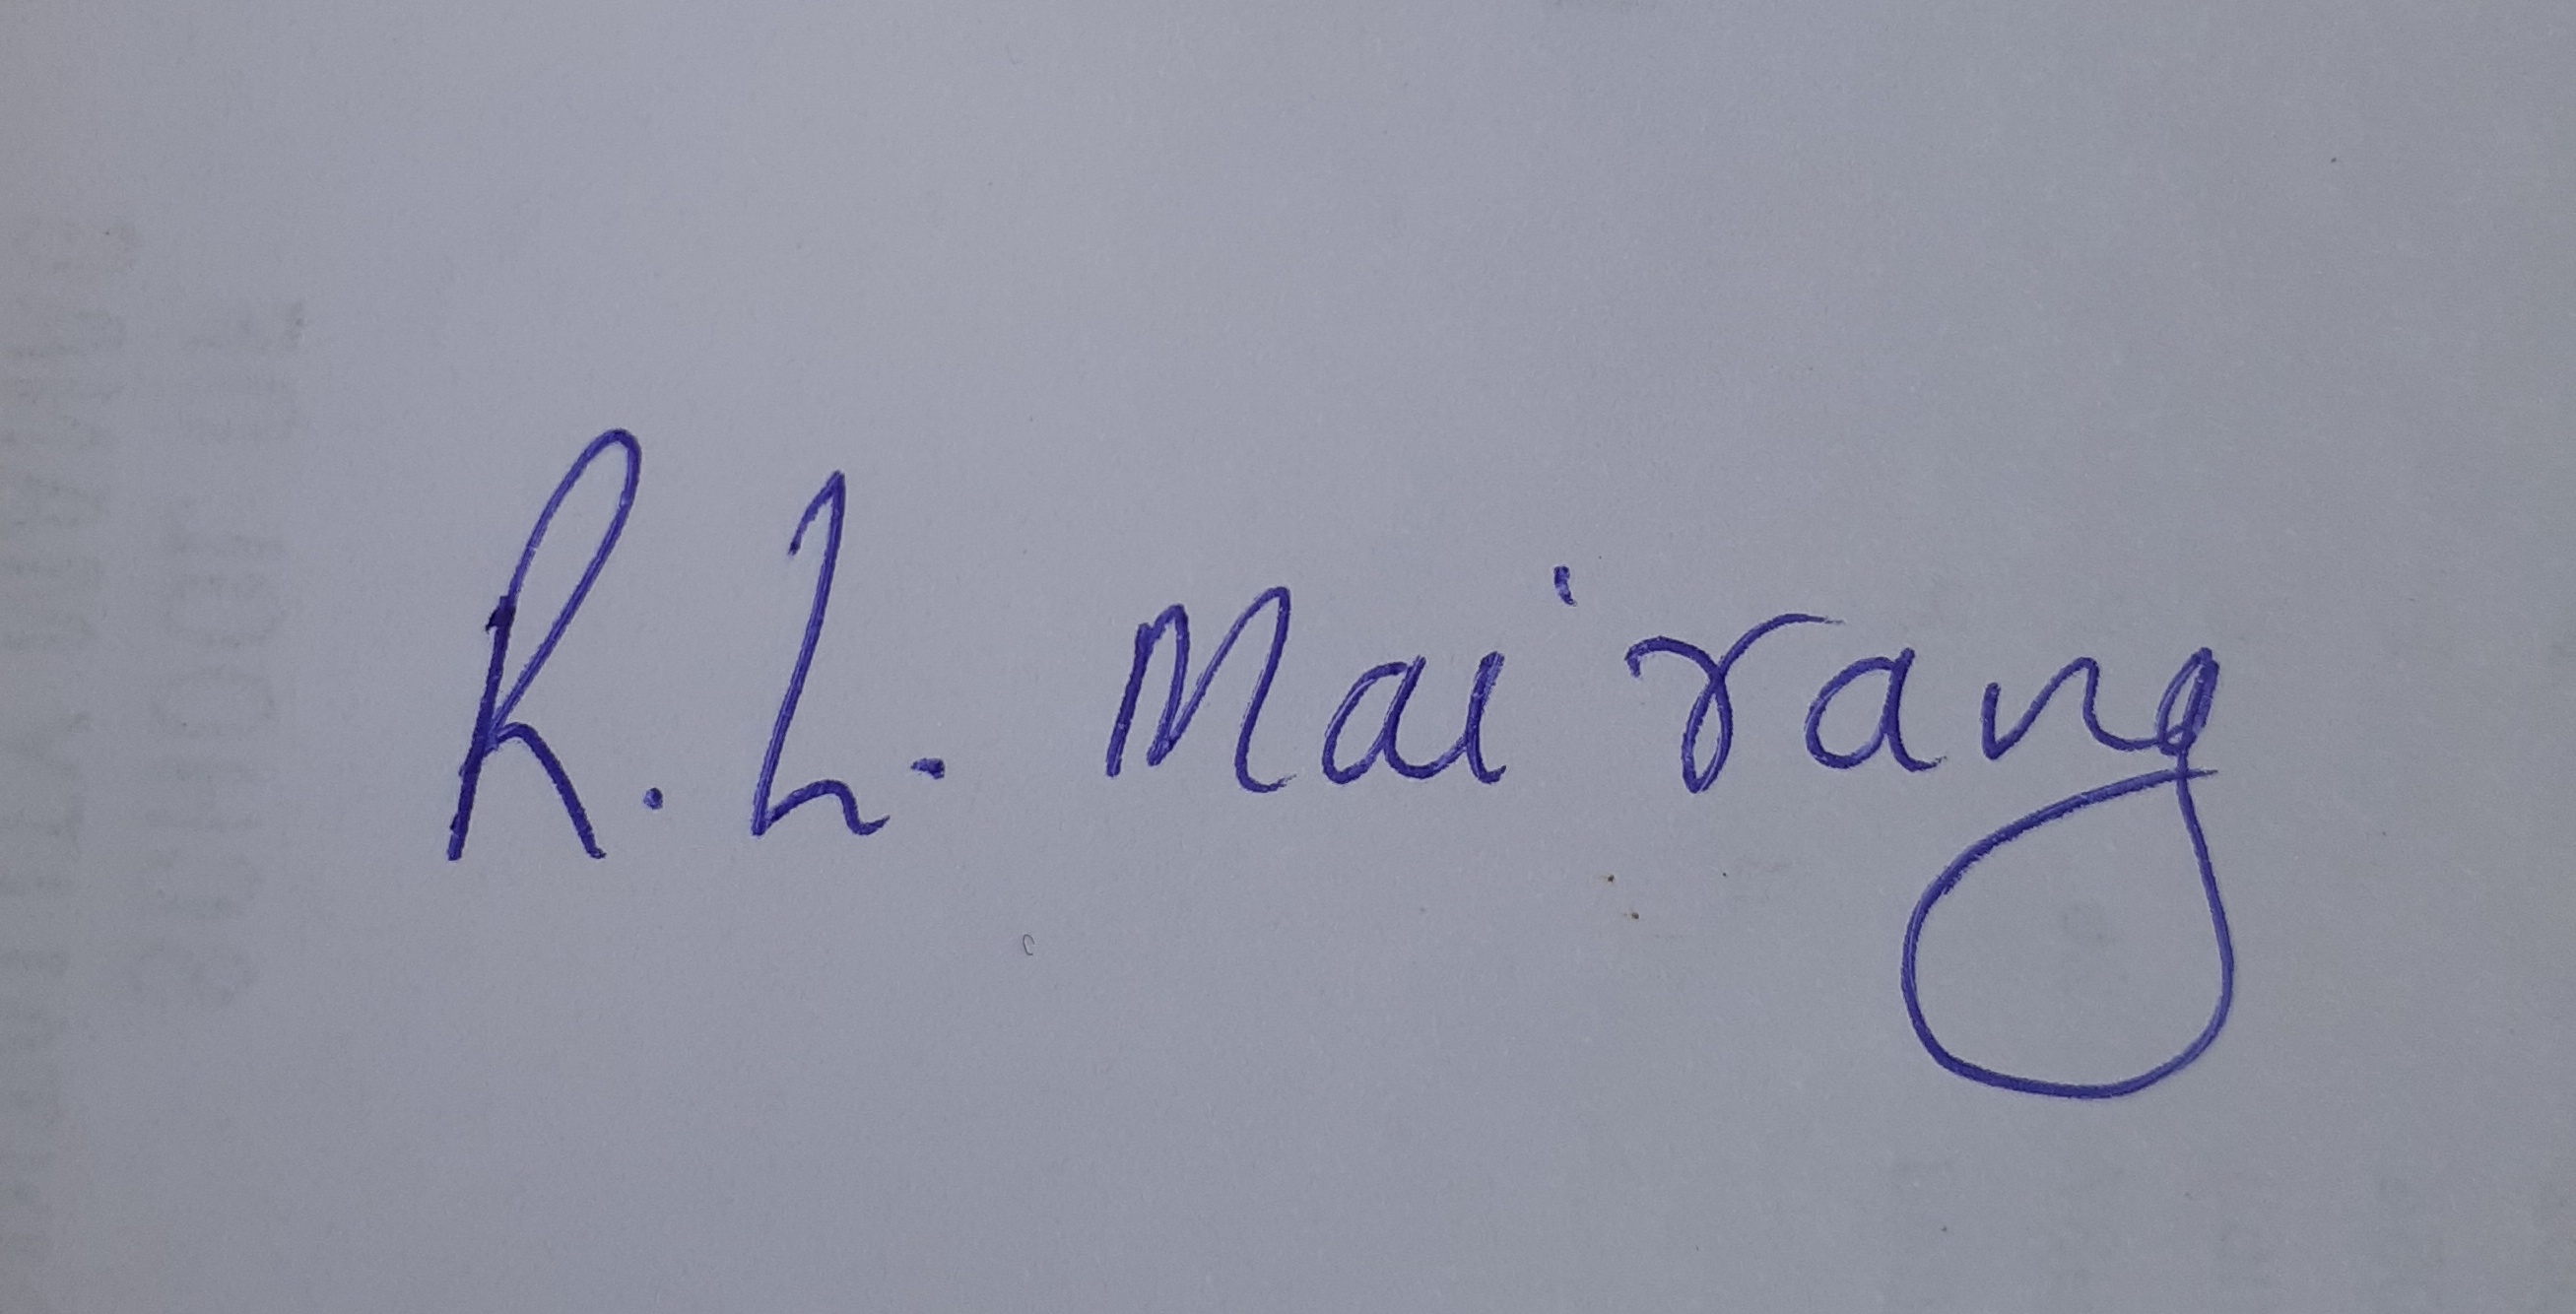 R. L. Mairang